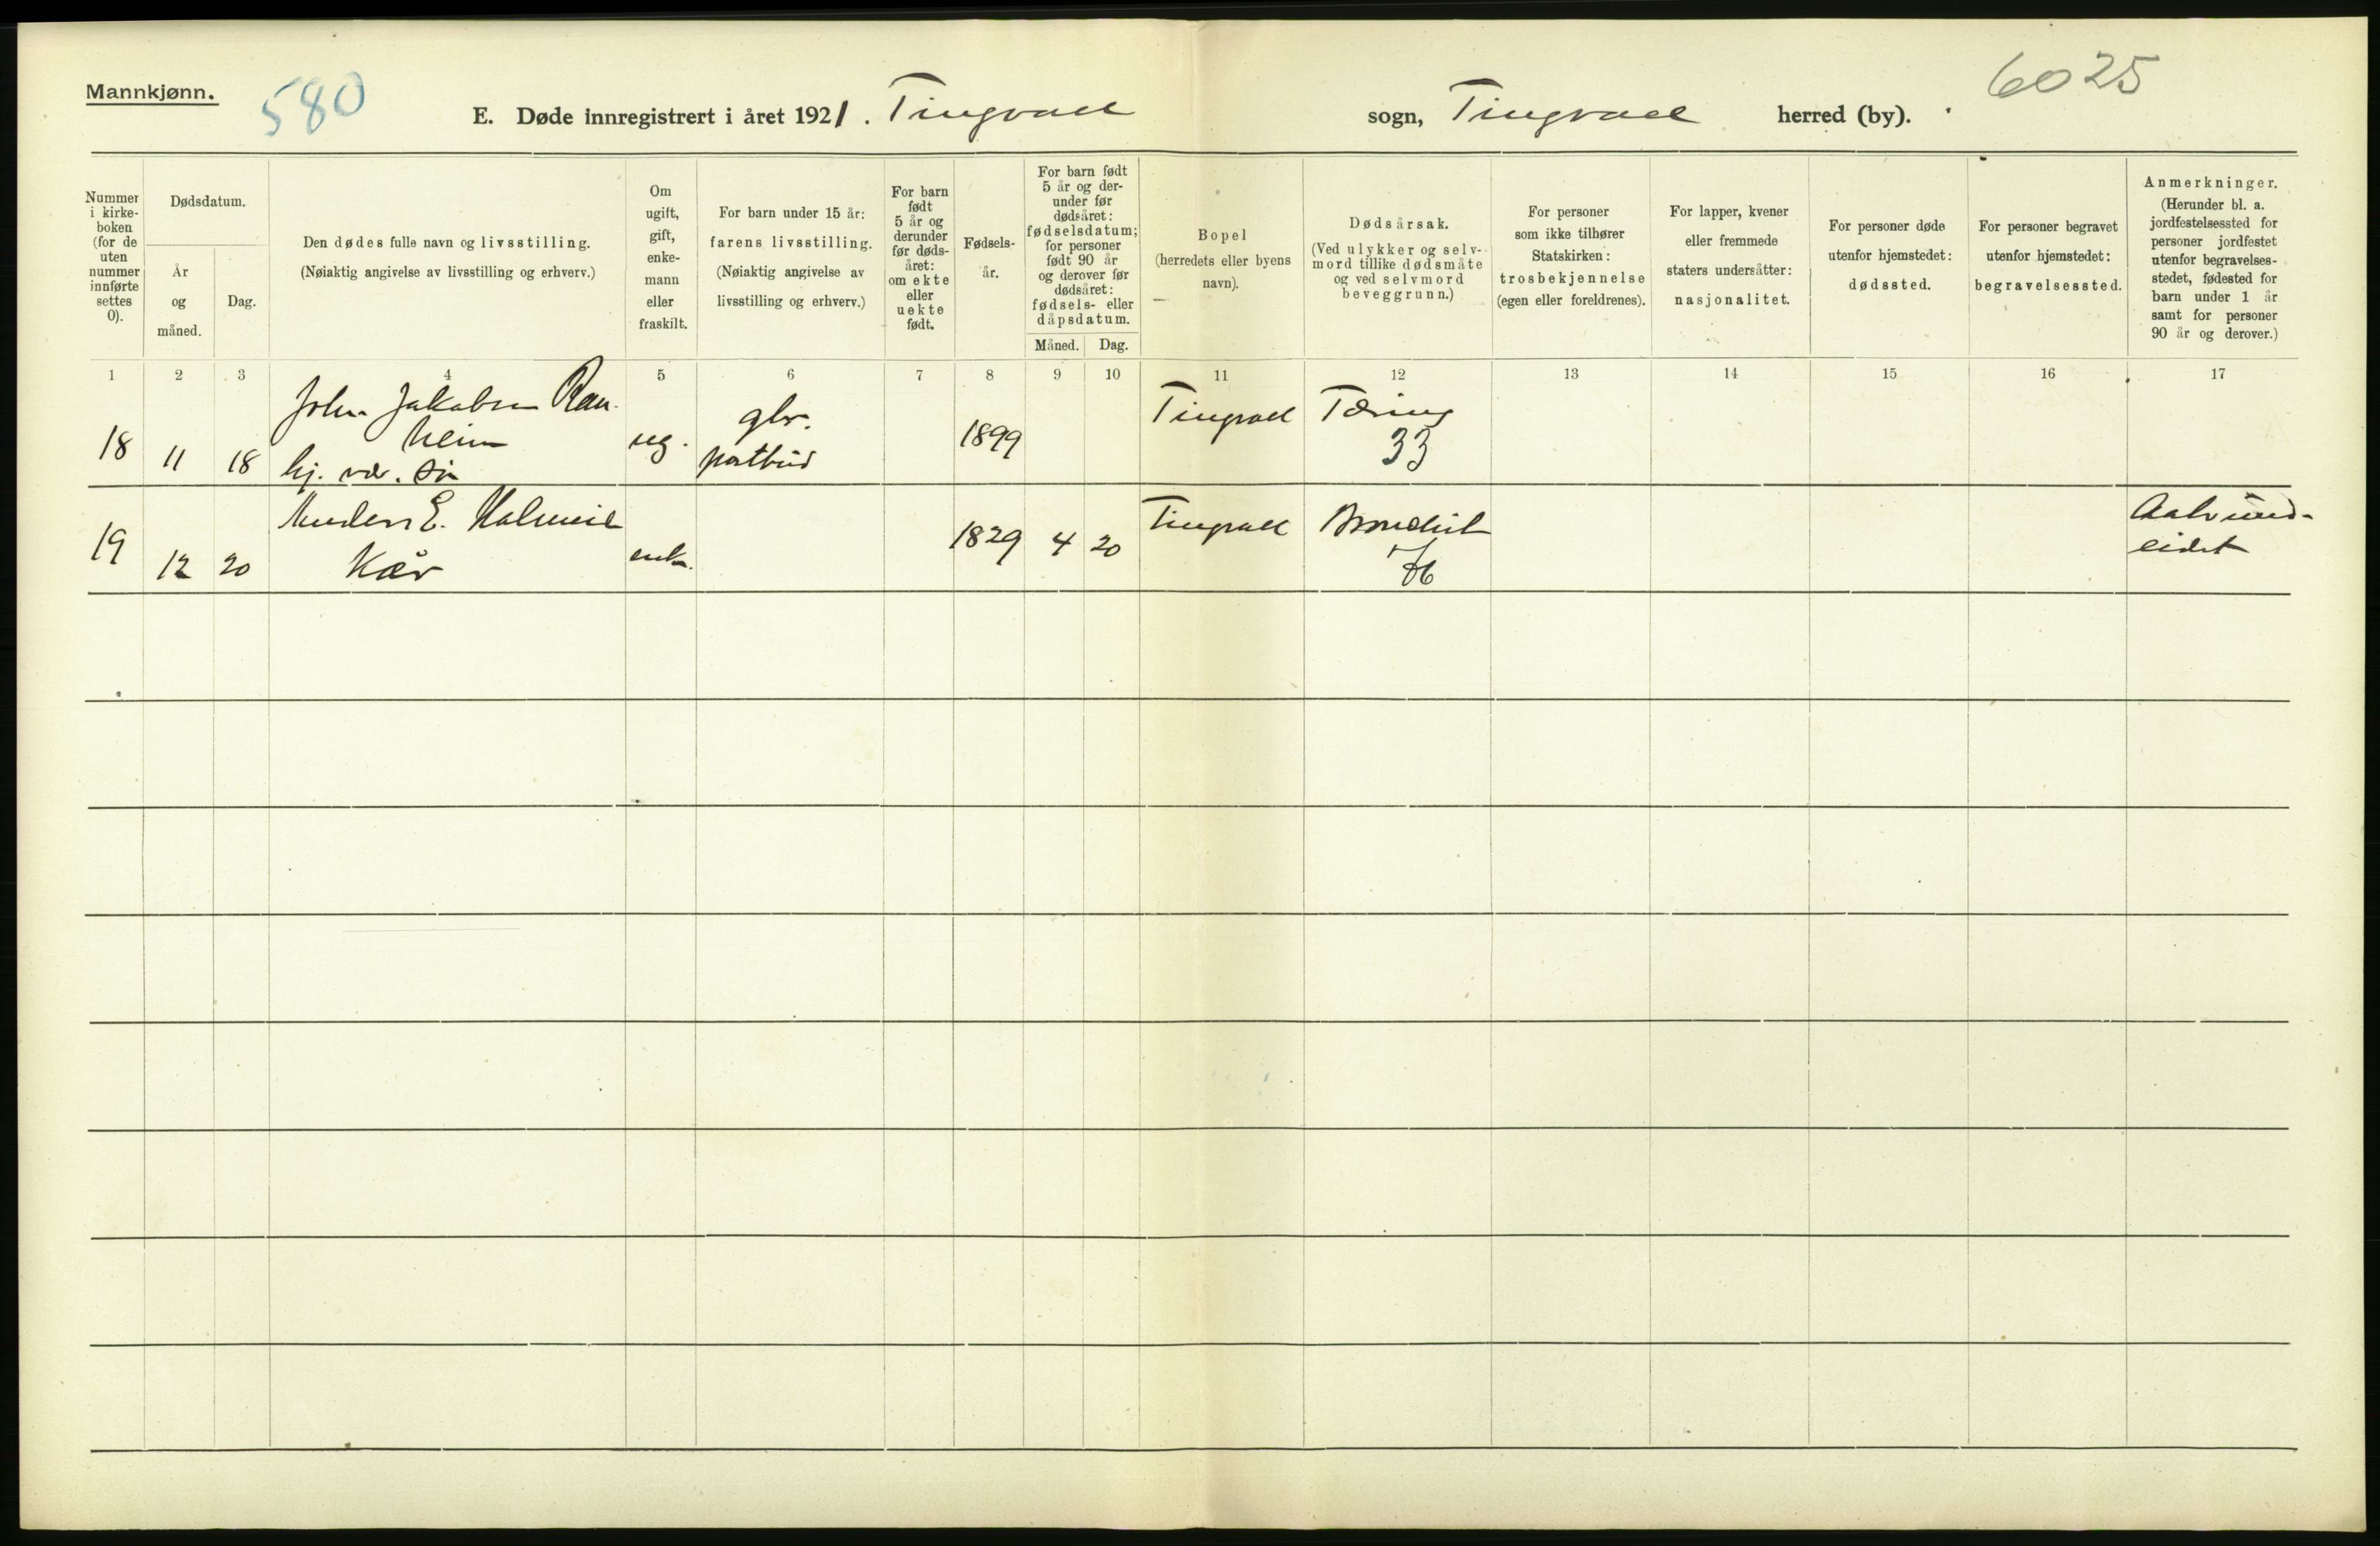 Mannkjønn.
580
6025
E. Døde innregistrert i året 1921. Tingvoll sogn, Tingvoll herred (by).
Nummer
i kirke-
boken
(for de
uten
nummer
innførte
settes
0).
Dødsdatum.
År
og
måned.
Dag.
Den dødes fulle navn og livsstilling.
(Nøiaktig angivelse av livsstilling og erhverv.)
Om
ugift,
gift,
enke-
mann
eller
fraskilt.
For barn under 15 år:
farens livsstilling.
(Nøiaktig angivelse av
livsstilling og erhverv.)
For barn
født
5 år og
derunder
før døds-
året:
om ekte
eller
uekte
født.
Fødsels-
år.
For barn født
5 år og der-
under før
dødsåret:
fødselsdatum;
for personer
født 90 år
og derover før
dødsåret:
fødsels- eller
dåpsdatum.
Måned. Dag.
Bopel
(herredets eller byens
navn).
Dødsårsak.
(Ved ulykker og selv-
mord tillike dødsmåte
og ved selvmord
beveggrunn.)
For personer
som ikke tilhører
Statskirken:
trosbekjennelse
(egen eller foreldrenes).
For lapper, kvener
eller fremmede
staters undersåtter:
nasjonalitet.
For personer døde
utenfor hjemstedet:
dødssted.
For personer begravet
utenfor hjemstedet:
begravelsessted.
Anmerkninger.
(Herunder bl. a.
jordfestelsessted for
personer jordfestet
utenfor begravelses-
stedet, fødested for
barn under 1 år
samt for personer
90 år og derover.)
1 2 3 4 5 6 7 8 9 10 11 12 13 14 15 16 17
John Jakobsen Ran-
heim
18 11 18 hj. vær. søn ug. gbr. postbud 1899 Tingvoll Tæring
33
Anders E. Halmeid
19 12 20 Kår enkm. 1829 4 20 Tingvoll Bronchit
Aalvund-
eidet